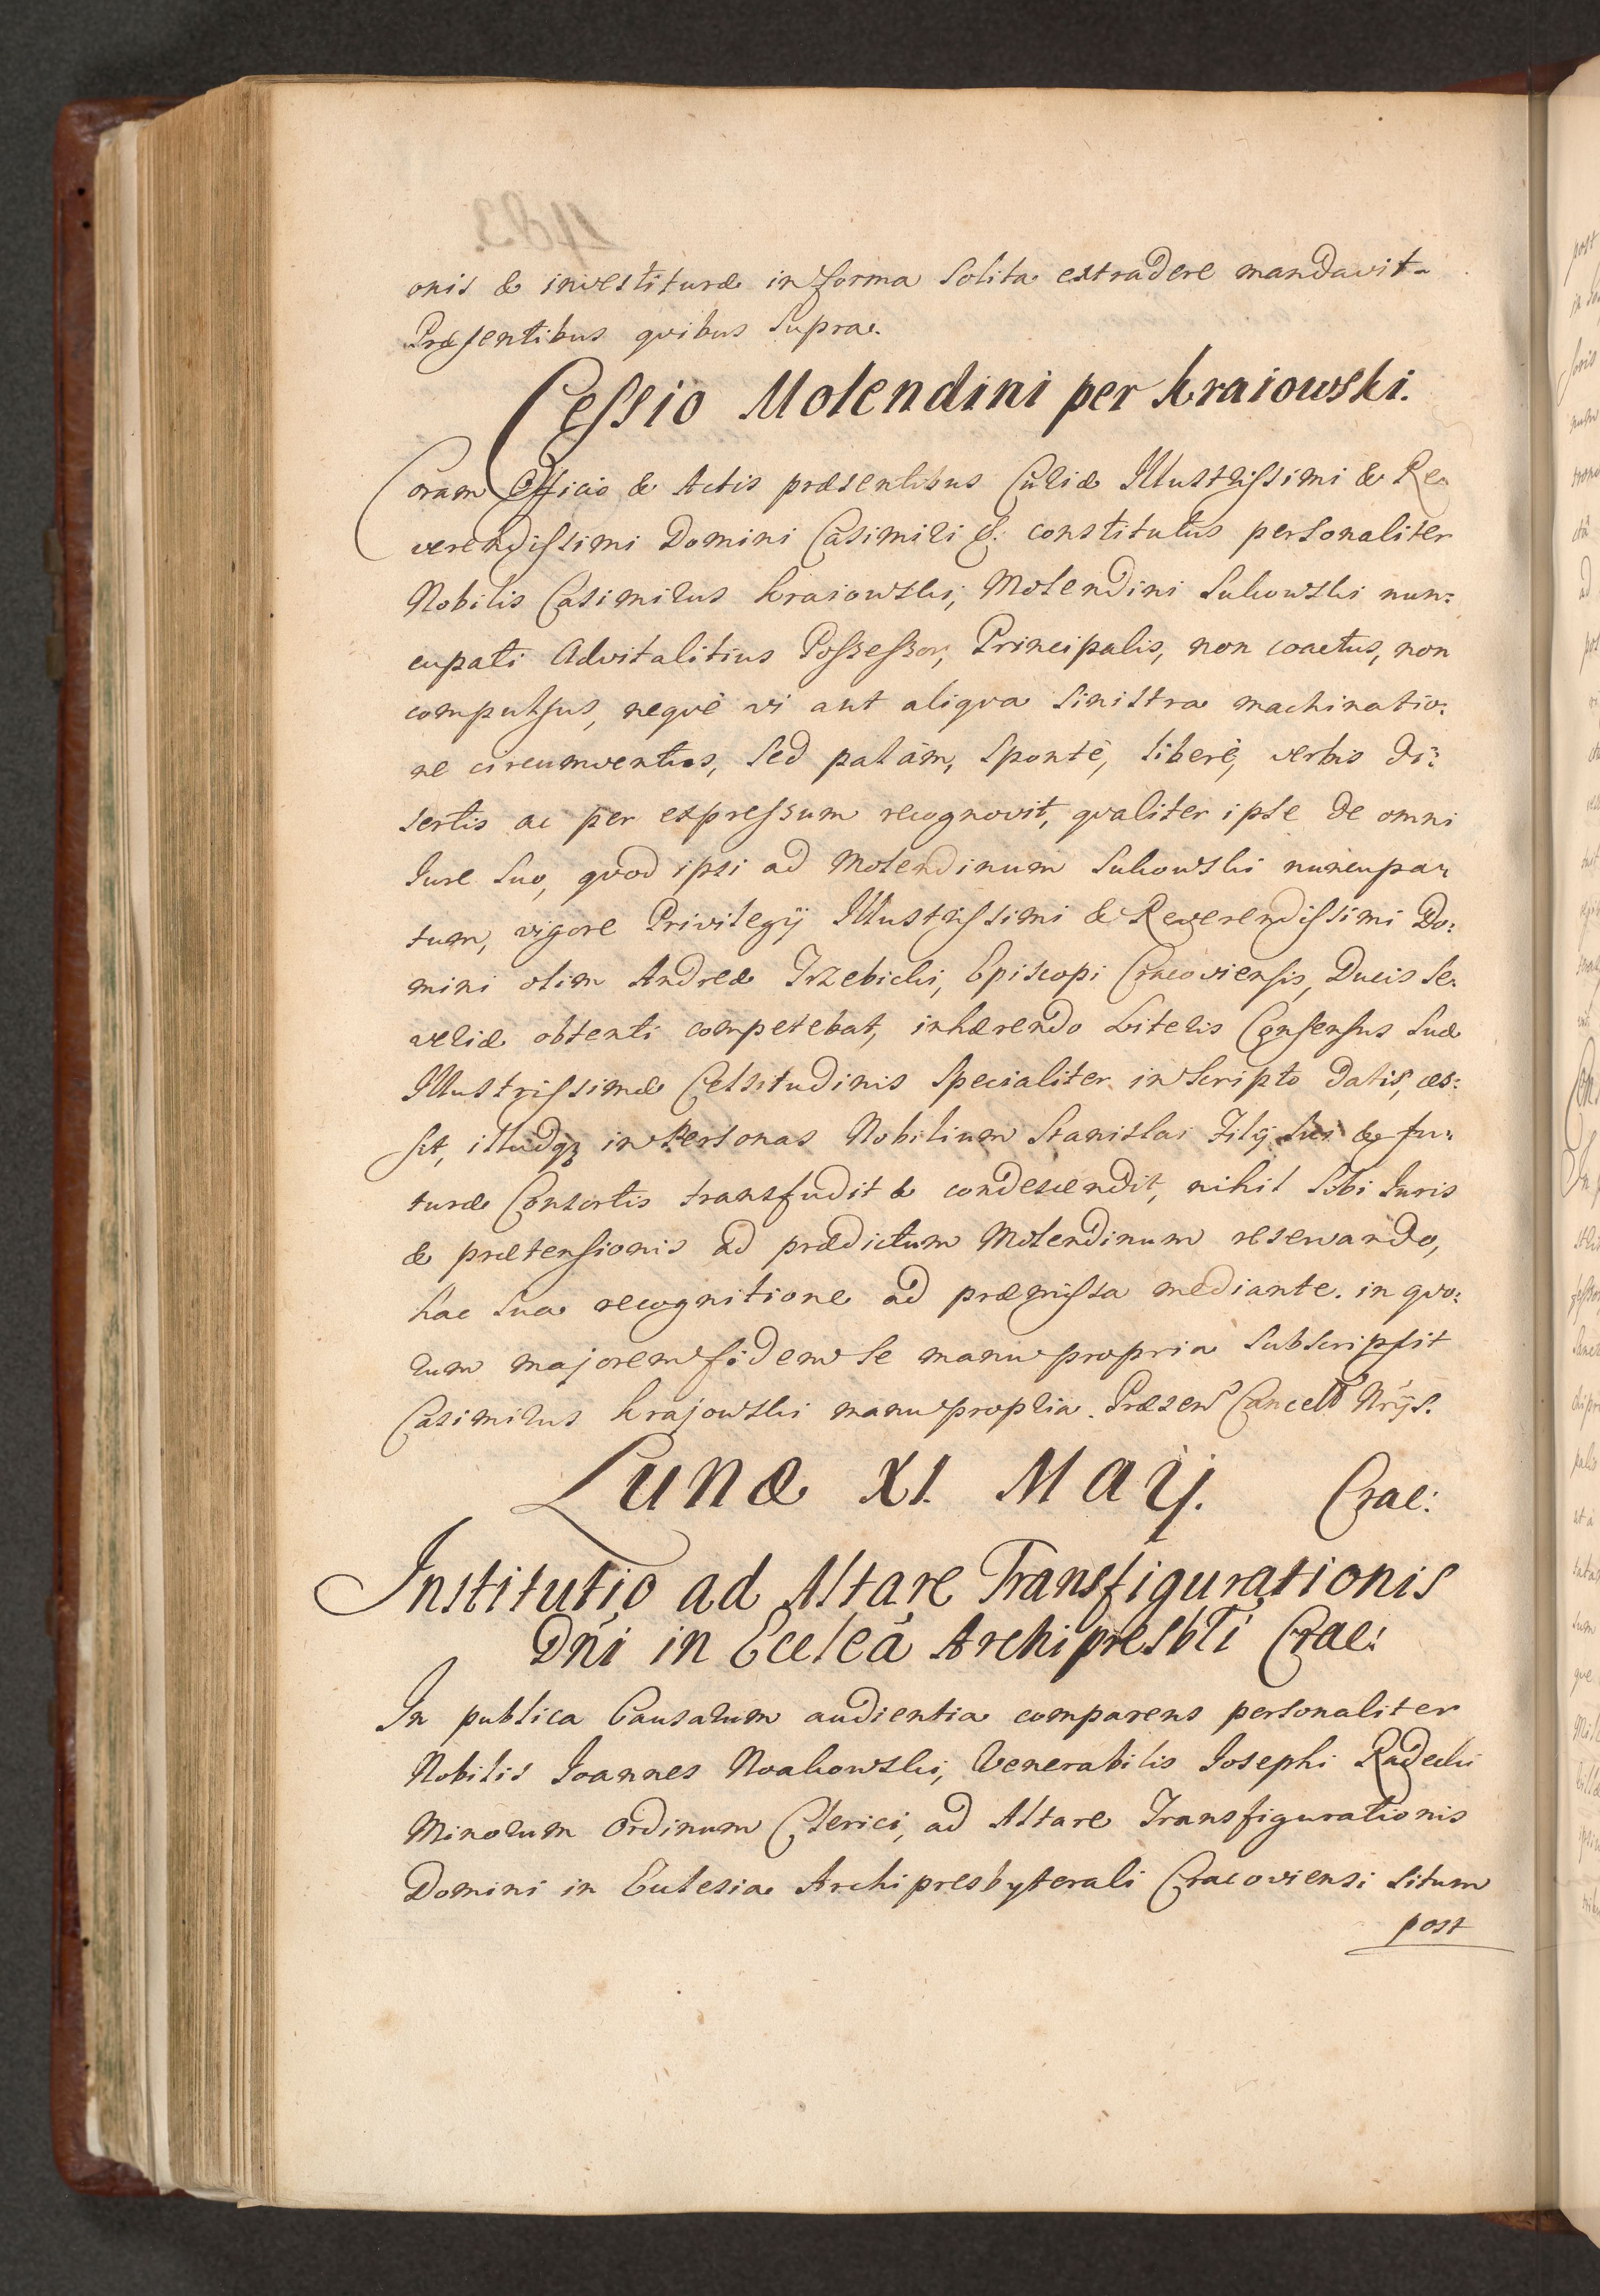 onis & investituræ in forma solita extradere mandavit.
Præsentibus quibus supra.
Cessio Molendini per Kraiowski.
Coram Officio & Actis præsentibus Curiæ Illustrissimi & Re-
verendissimi Domini Casimiri &. constitutus personaliter
Nobilis Casimirus Kraiowski, Molendini Sukowski nun:
cupati Advitalitius Possessor, Principalis, non coactus, non
compulsus, neque vi aut aliqua sinistra machinatio:
ne circumventus, sed palàm, sponte, liberè, verbis di:
sertis ac per expressum recognovit, qvaliter ipse de omni
Iure suo, qvod ipsi ad Molendinum Sukowski nuncupa-
tum, vigore Privilegij Illustrissimi & Reverendissimi Do:
mini olim Andreæ Trzebicki, Episcopi Cracoviensis, Ducis Se-
veriæ obtenti competebat, inhærendo Literis Consensus Suæ
Illustrissimæ Celsitudinis specialiter in scripto datis, ces:
sit, illudq; in Personas Nobilium Stanislai Filij sui & fu:
turæ Consortis transfudit & condescendit, nihil sibi Iuris
& prætensionis ad prædictum Molendinum reservando,
hac sua recognitione ad præmissa mediante. in qvo:
rum majorem fidem se manu propria subscripsit
Casimirus Krajowski manu propria. Præsen Cancell Nrijs.
Lunæ XI. Maij. Crac:
Institutio ad Altare Transfigurationis
Dńi in Eccleã Archipresbtĩ Crac:
In publica Causarum audientia comparens personaliter
Nobilis Joannes Noakowski, Venerabilis Josephi Radecki
Minorum Ordinum Clerici, ad Altare Transfigurationis
Domini in Ecclesia Archipresbyterali Cracoviensi situm
post